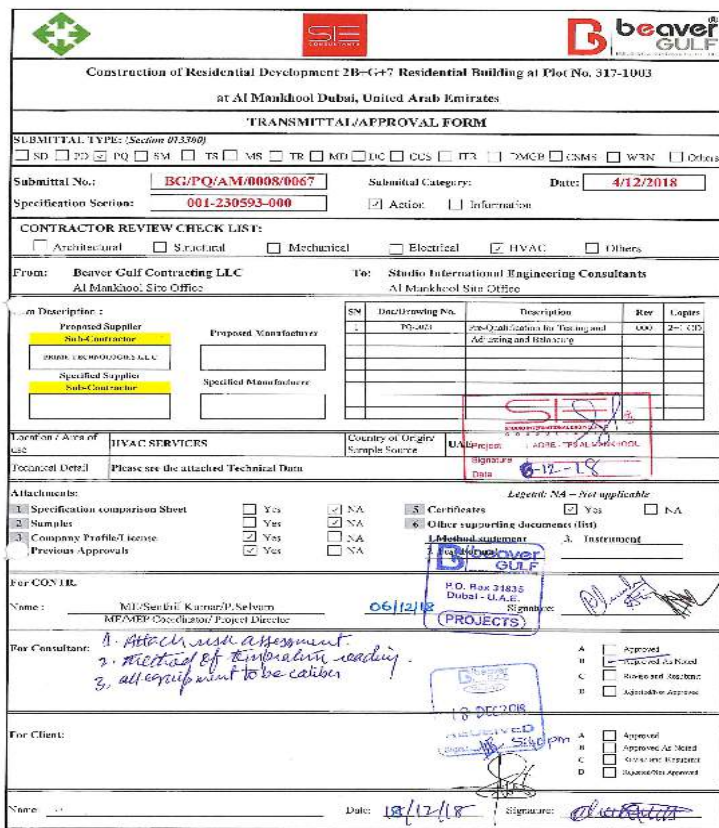 SIE
CONSULTANTS
beaver
GULF
Construction of Residential Development 2B+G+7 Residential Building at Plot No. 317-1003
at Al Mankhool Dubai, United Arab Emirates
TRANSMITTAL/APPROVAL FORM
SUBMITTAL TYPE: (Section 013300)
SD PD PQ SM TS MS TR MD DC CCS ITR DMGB CSMS WRN Others
Submittal No.: BG/PQ/AM/0008/0067 Submittal Category: Date: 4/12/2018
Specification Section: 001-230593-000 Action Information
CONTRACTOR REVIEW CHECK LIST:
Architectural Structural Mechanical Electrical HVAC Others
From: Beaver Gulf Contracting LLC To: Studio International Engineering Consultants
Al Mankhool Site Office Al Mankhool Site Office
Description :
Proposed Supplier
Sub-Contractor
Proposed Manufacturer
PRIME TECHNOLOGIES LLC
Specified Supplier
Sub-Contractor
Specified Manufacturer
SN Doc/Drawing No. Description Rev Copies
1 Pre-Qualification for Testing and 000 2+1 CD
Adjusting and Balancing
SIE
Location / Area of use HVAC SERVICES Country of Origin/ Sample Source UAE
Project
Signature
Date 6-12-18
Technical Detail Please see the attached Technical Data
Attachments: Legend: NA – Not applicable
1 Specification comparison Sheet Yes NA 5 Certificates Yes NA
2 Samples Yes NA 6 Other supporting documents (list)
3 Company Profile/License Yes NA 1.Method statement 3. Instrument
Previous Approvals Yes NA
beaver
GULF
P.O. Box 31835
Dubai - U.A.E.
(PROJECTS)
For CONTR.
Name : ME/Senthil Kumar/P.Selvam 06/12/18 Signature:
ME/MEP Coordinator/ Project Director
For Consultant:
1. Attach risk assessment.
2. method of reading.
3. all equipment to be
A Approved
B Approved As Noted
C Revise and Resubmit
D Rejected/Not Approved
18 DEC 2018
RECEIVED
5:40pm
For Client:
A Approved
B Approved As Noted
C Revise and Resubmit
D Rejected/Not Approved
Name: Date: 18/12/18 Signature: